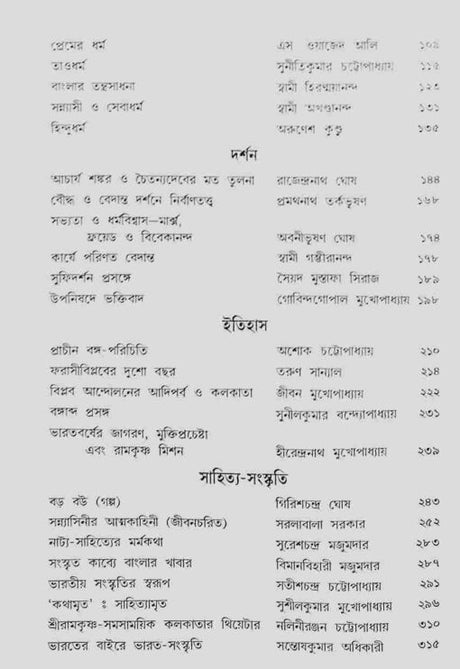 প্রেমের ধর্ম এস ওয়াজেদ আলি ১০৯
তাওধর্ম সুনীতিকুমার চট্টোপাধ্যায় ১১৫
বাংলার তন্ত্রসাধনা স্বামী হিরণ্ময়ানন্দ ১২৩
সন্ন্যাসী ও সেবাধর্ম স্বামী অখণ্ডানন্দ ১৩১
হিন্দুধর্ম অরুণেশ কুণ্ডু ১৩৫
দর্শন
আচার্য শঙ্কর ও চৈতন্যদেবের মত তুলনা রাজেন্দ্রনাথ ঘোষ ১৪৪
বৌদ্ধ ও বেদান্ত দর্শনে নির্বাণতত্ত্ব প্রমথনাথ তর্কভূষণ ১৬৮
সভ্যতা ও ধর্মবিশ্বাস—মার্ক্স,
ফ্রয়েড ও বিবেকানন্দ অবনীভূষণ ঘোষ ১৭৪
কার্যে পরিণত বেদান্ত স্বামী গম্ভীরানন্দ ১৭৮
সুফিদর্শন প্রসঙ্গে সৈয়দ মুস্তাফা সিরাজ ১৮৯
উপনিষদে ভক্তিবাদ গোবিন্দগোপাল মুখোপাধ্যায় ১৯৮
ইতিহাস
প্রাচীন বঙ্গ-পরিচিতি অশোক চট্টোপাধ্যায় ২১০
ফরাসীবিপ্লবের দুশো বছর তরুণ সান্যাল ২১৪
বিপ্লব আন্দোলনের আদিপর্ব ও কলকাতা জীবন মুখোপাধ্যায় ২২২
বঙ্গাব্দ প্রসঙ্গ সুনীলকুমার বন্দ্যোপাধ্যায় ২৩১
ভারতবর্ষের জাগরণ, মুক্তিপ্রচেষ্টা
এবং রামকৃষ্ণ মিশন হীরেন্দ্রনাথ মুখোপাধ্যায় ২৩৯
সাহিত্য-সংস্কৃতি
বড় বউ (গল্প) গিরিশচন্দ্র ঘোষ ২৪৩
সন্ন্যাসিনীর আত্মকাহিনী (জীবনচরিত) সরলাবালা সরকার ২৫২
নাট্য-সাহিত্যের মর্মকথা সুরেশচন্দ্র মজুমদার ২৮৩
সংস্কৃত কাব্যে বাংলার খাবার বিমানবিহারী মজুমদার ২৮৭
ভারতীয় সংস্কৃতির স্বরূপ সতীশচন্দ্র চট্টোপাধ্যায় ২৯১
‘কথামৃত’ ঃ সাহিত্যামৃত সুশীলকুমার মুখোপাধ্যায় ২৯৬
শ্রীরামকৃষ্ণ-সমসাময়িক কলকাতার থিয়েটার নলিনীরঞ্জন চট্টোপাধ্যায় ৩১০
ভারতের বাইরে ভারত-সংস্কৃতি সন্তোষকুমার অধিকারী ৩১৫